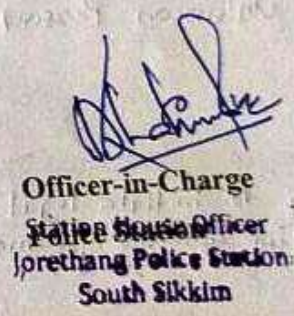 Officer-in-Charge
Police Station
Station House Officer
Jorethang Police Station
South Sikkim